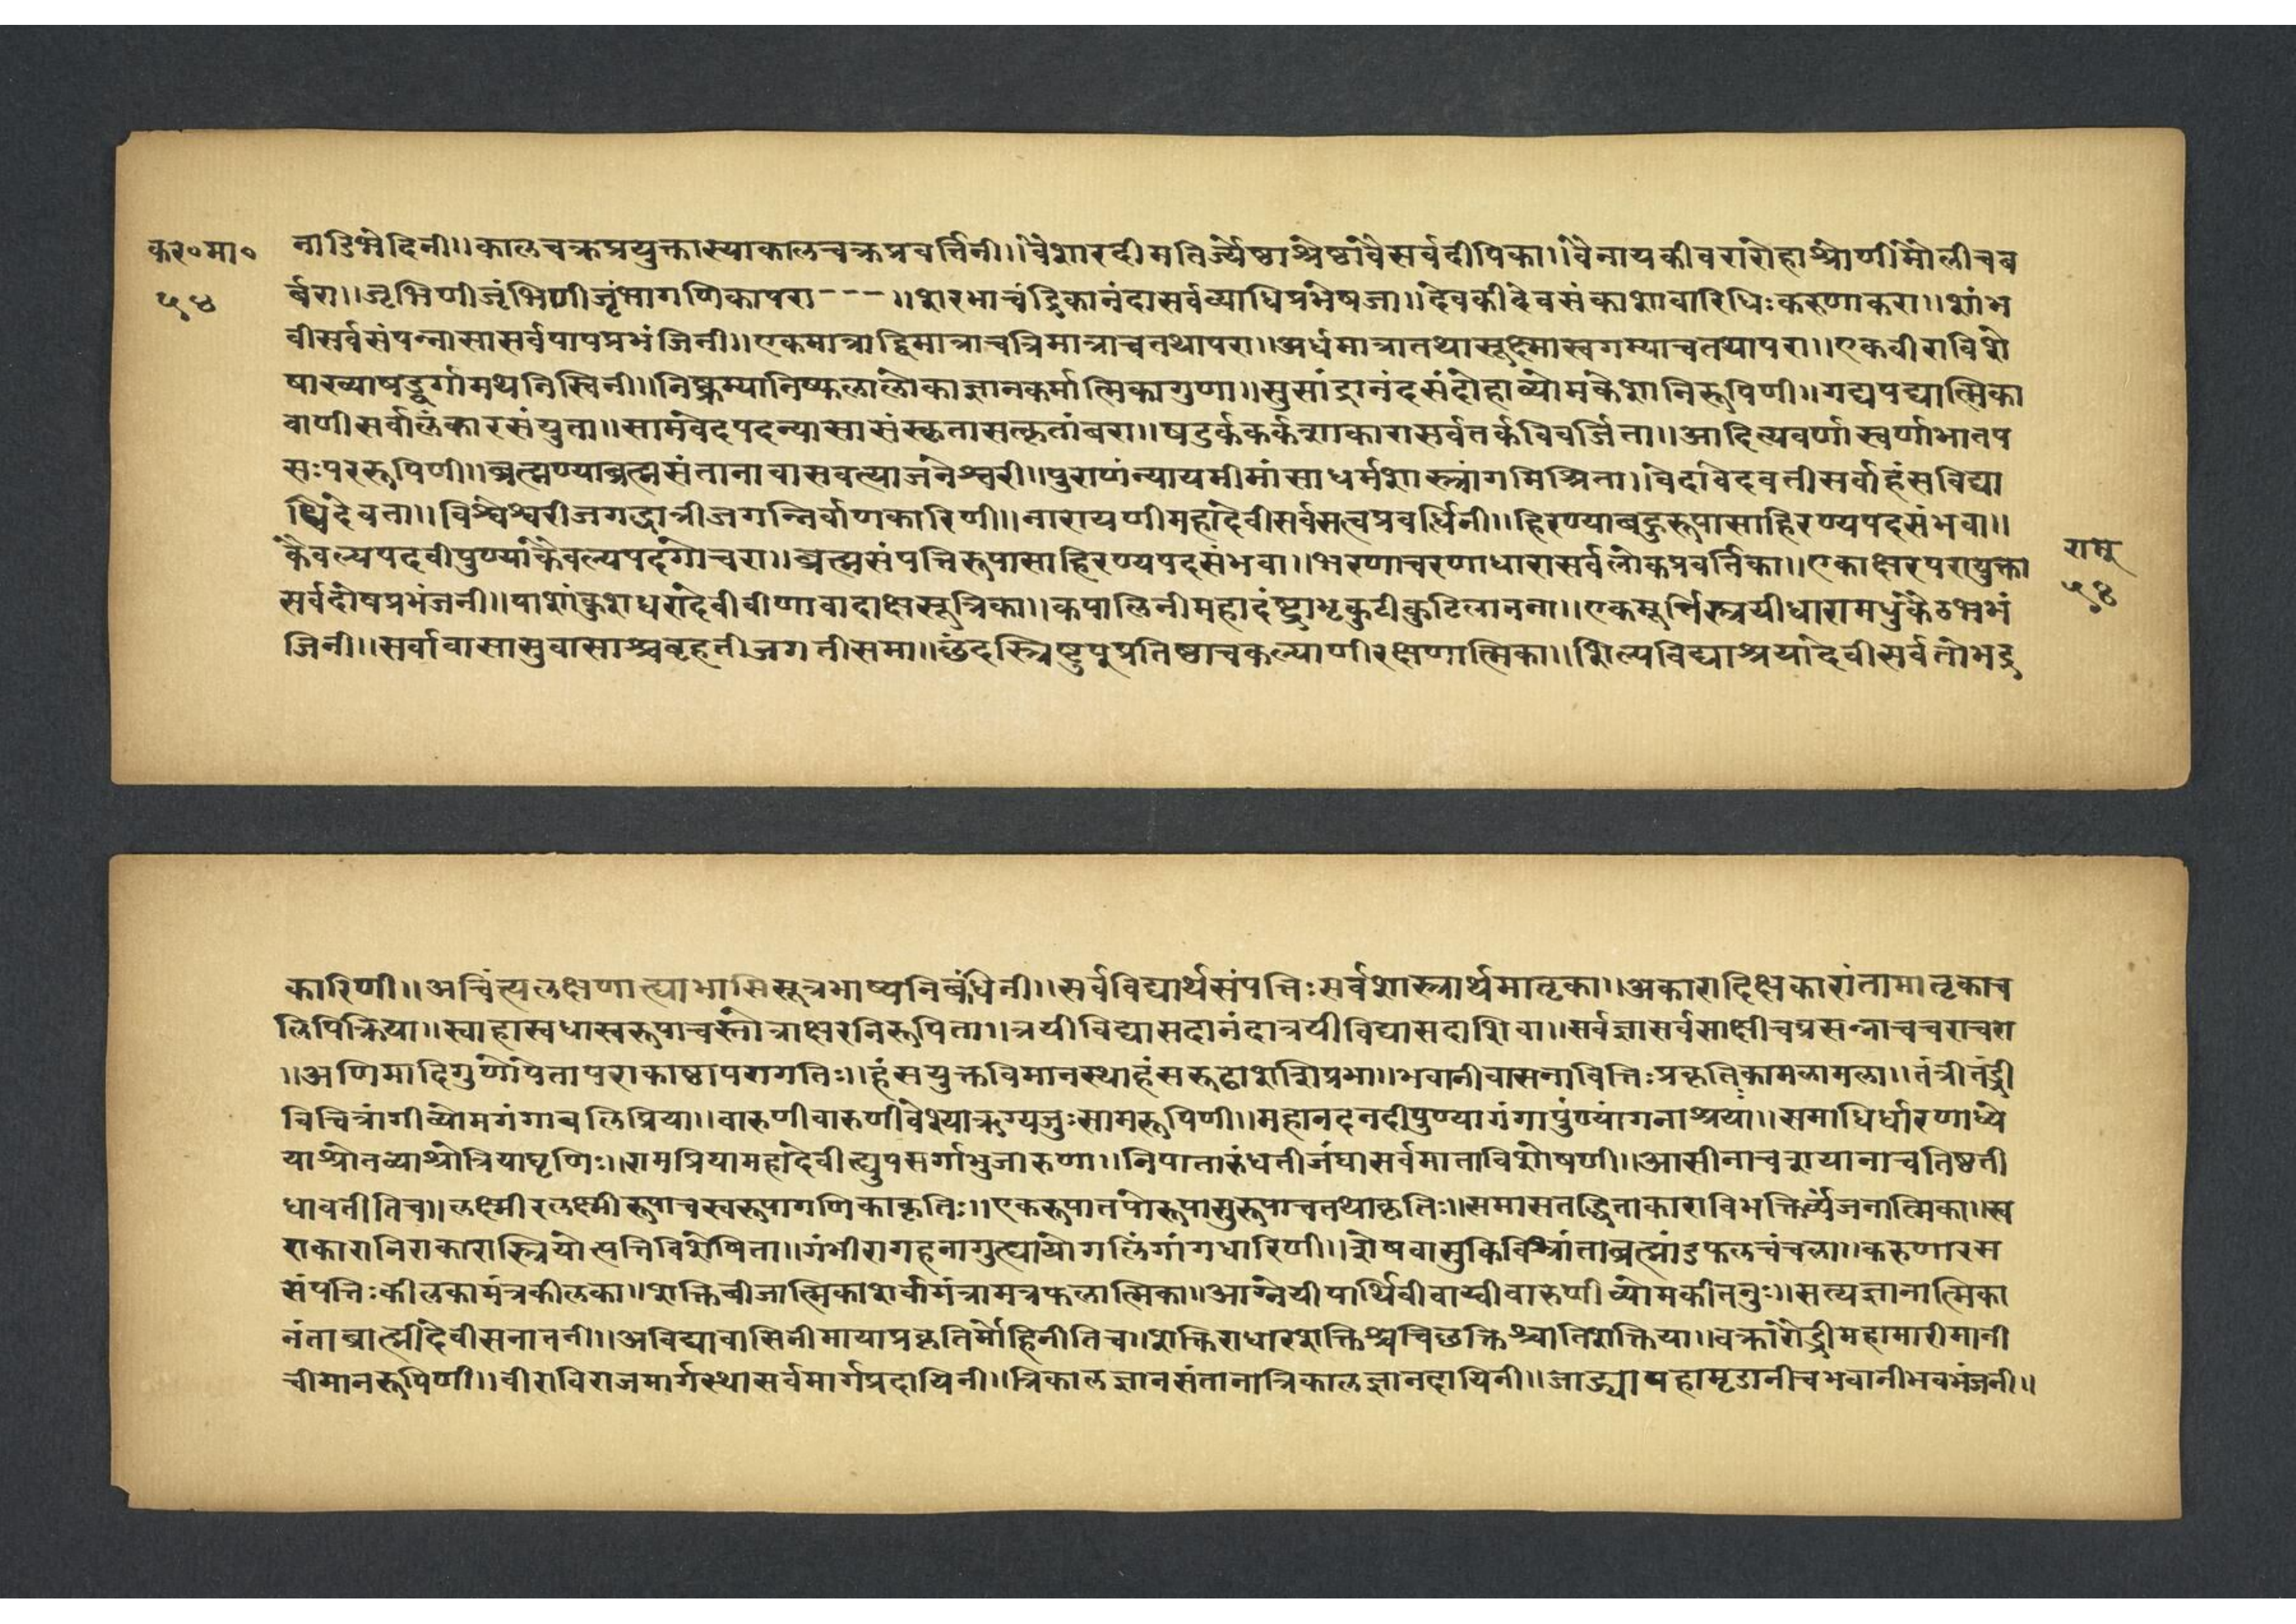 कर०मा०
५४
नाडिभेदिनी॥कालचक्रप्रयुक्तास्याकालचक्रप्रवर्त्तिनी॥वैशारदीमतिर्ज्येष्ठाश्रेष्ठावैसर्वदीपिका॥वैनायकीवरारोहाश्रोणीमौलीचब
र्बरा॥जृंभिणीजृंभिणीजृंभागणिकापरा---॥शरभाचंद्रिकानंदासर्वव्याधिप्रभेषजा॥देवकीदेवसंकाशावारिधिःकरुणाकरा॥शांभ
वीसर्वसंपन्नासासर्वपापप्रभंजिनी॥एकमात्राद्विमात्राचत्रिमात्राचतथापरा॥अर्धमात्रातथासूक्ष्मास्वगम्याचतथापरा॥एकवीराविशे
षाख्याषड्दुर्गामथनिस्विनी॥निष्क्रम्यानिष्फलालोकाज्ञानकर्मात्मिकागुणा॥सुसांद्रानंदसंदोहाव्योमकेशानिरूपिणी॥गद्यपद्यात्मिका
वाणीसर्वालंकारसंयुता॥सामवेदपदन्यासासंस्कृतासत्कृतांबरा॥षडर्ककर्कशाकारासर्वतर्कविवर्जिता॥आदित्यवर्णास्वर्णाभातप
सःपररूपिणी॥ब्रह्मण्याब्रह्मसंतानावासवत्याजनेश्वरी॥पुराणंन्यायमीमांसाधर्मशास्त्रांगमिश्रिता॥वेदावेदवतीसर्वाहंसविद्या
धिदेवता॥विश्वेश्वरीजगद्धात्रीजगन्निर्वाणकारिणी॥नारायणीमहादेवीसर्वसत्वप्रवर्धिनी॥हिरण्याबहुरूपासाहिरण्यपदसंभवा॥
कैवल्यपदवीपुण्याकैवल्यपदगोचरा॥ब्रह्मसंपत्तिरूपासाहिरण्यपदसंभवा॥भरणाचरणाधारासर्वलोकप्रवर्तिका॥एकाक्षरपरायुक्ता
राम
५४
सर्वदोषप्रभंजनी॥पाशांकुशधरादेवीवीणावादाक्षसूत्रिका॥कपालिनीमहादंष्ट्राभृकुटीकुटिलानना॥एकमूर्त्तिस्त्रयीधारामधुकैठभभं
जिनी॥सर्वावासासुवासाश्चबृहतीजगतीसमा॥छंदस्त्रिष्टुपुप्रतिष्ठाचकल्याणीरक्षणात्मिका॥शिल्पविद्याश्रयादेवीसर्वतोभद्र
कारिणी॥अचिंत्यलक्षणात्याभासिसूत्रभाष्यनिबंधिनी॥सर्वविद्यार्थसंपत्तिःसर्वशास्त्रार्थमातृका॥अकारादिक्षकारांतामातृकाच
लिपिक्रिया॥स्वाहास्वधास्वरूपाचस्तोत्राक्षरनिरूपिता॥त्रयीविद्यासदानंदात्रयीविद्यासदाशिवा॥सर्वज्ञासर्वसाक्षीचप्रसन्नाचचराचरा
॥अणिमादिगुणोपेतापराकाष्ठापरागतिः॥हंसयुक्तविमानस्थाहंसरूढाशशिप्रभा॥भवानीवासनावित्तिःप्रकृतिःकामलामला॥तंत्रीतंद्री
विचित्रांगीव्योमगंगाबलिप्रिया॥वारुणीवारुणीवेश्याऋग्यजुःसामरूपिणी॥महानदनदीपुण्यागंगापुण्यांगनाश्रया॥समाधिर्धारणाध्ये
याश्रोतव्याश्रोत्रियाघृणिः॥रामप्रियामहादेवीत्युपसर्गाभुजारुणा॥निपातारुंधतीजंघासर्वमाताविशेषणी॥आसीनाचशयानाचतिष्ठती
धावतीतिच॥लक्ष्मीरलक्ष्मीरूपाचस्वरूपागणिकाकृतिः॥एकरूपातपोरूपासुरूपाचतथाकृतिः॥समासतद्धिताकाराविभक्तिर्व्यंजनात्मिका॥स्व
राकारानिराकारास्त्रियोत्पत्तिविशेषिता॥गंभीरागहनागुह्यायोगलिंगांगधारिणी॥शेषवासुकिविश्रांताब्रह्मांडफलचंचला॥करुणारम
संपत्तिःकीलकामंत्रकीलका॥शक्तिबीजात्मिकाशर्वामंत्रामत्रफलात्मिका॥आग्नेयीपार्थिवीवायवीवारुणीव्योमकीतनुः॥सत्यज्ञानात्मिका
नंताब्राह्मीदेवीसनातनी॥अविद्यावासिनीमायाप्रकृतिर्मोहिनीतिच॥शक्तिराधारशक्तिश्चचिछक्तिश्चातिशक्तिया॥वक्रारौद्रीमहामारीमानी
चीमानरूपिणी॥वीराविराजमार्गस्थासर्वमार्गप्रदायिनी॥त्रिकालज्ञानसंतानात्रिकालज्ञानदायिनी॥जाड्यापहामृडानीचभवानीभवभंजनी॥